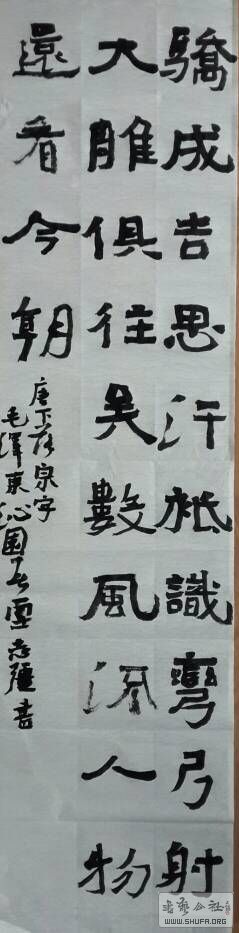 驕成吉思汗祗識彎弓射
大雕俱往矣數風流人物
還看今朝
毛澤東沁園春雪志彊書
書藝公社
WWW.SHUFA.ORG